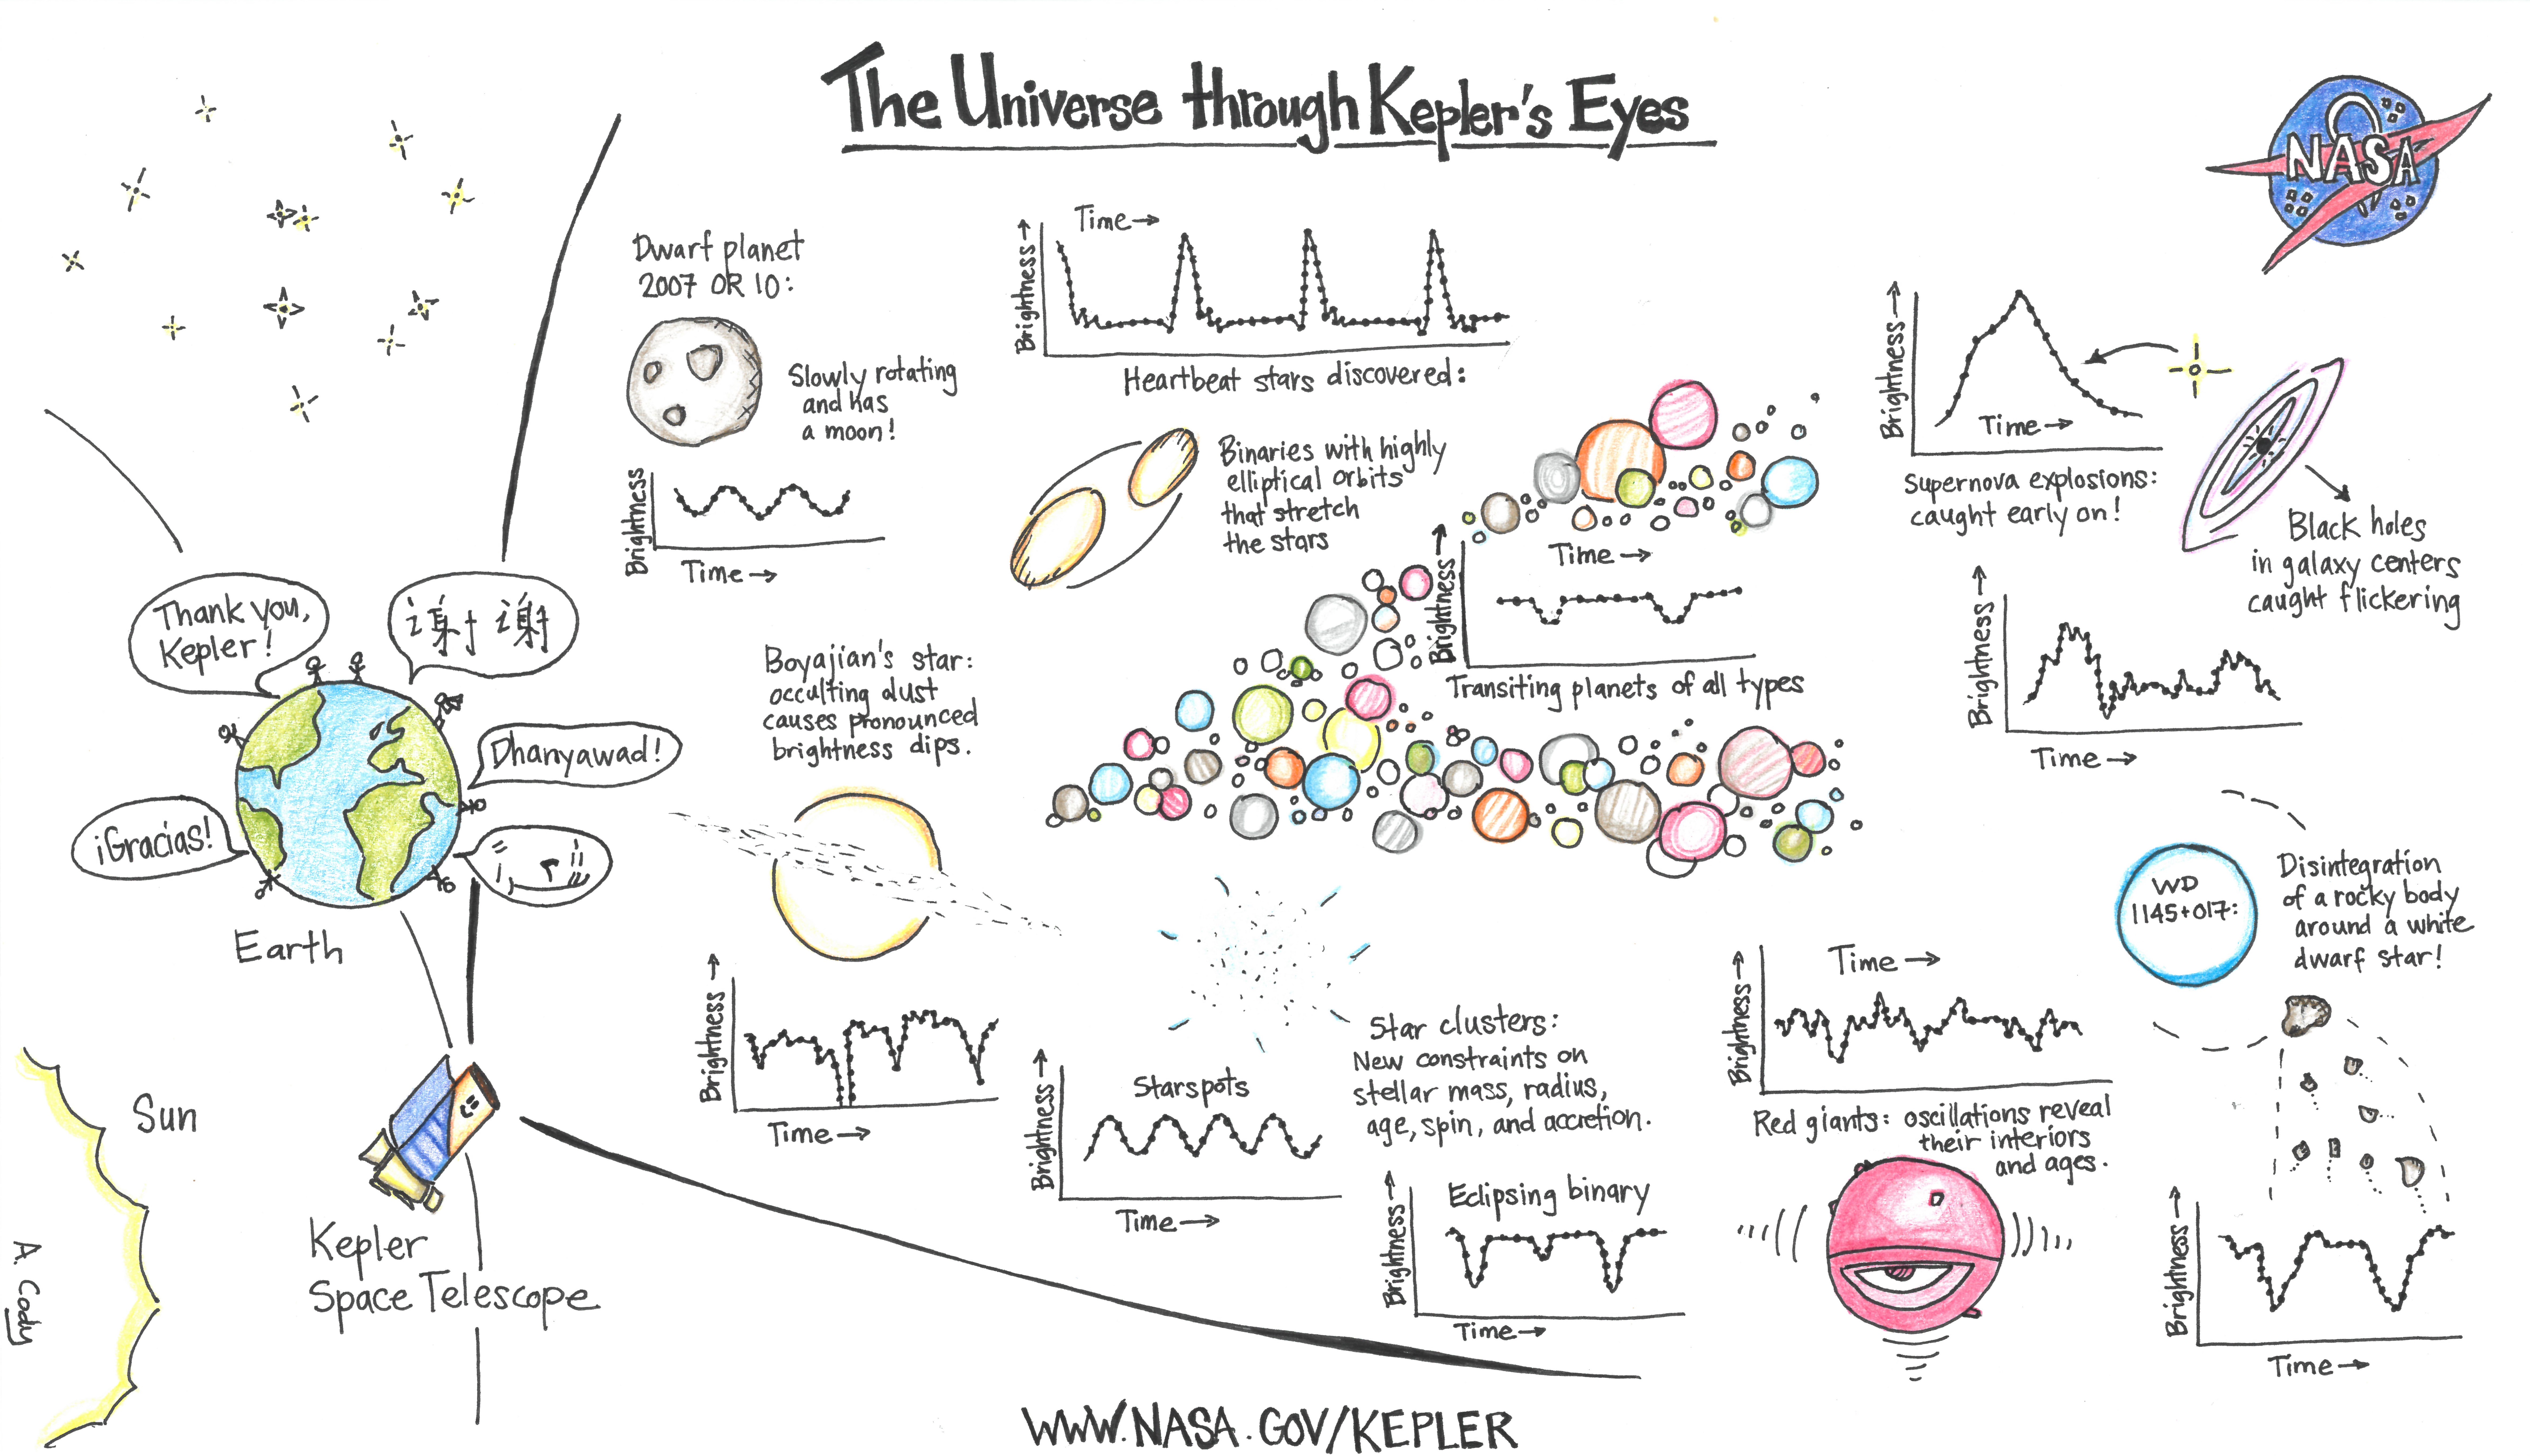 The Universe through Kepler's Eyes
NASA
Thank you,
Kepler!
谢谢
Dhanyawad!
¡Gracias!
Earth
Sun
Kepler
Space Telescope
A. Cody
Dwarf planet
2007 OR 10:
Slowly rotating
and has
a moon!
Brightness
Time →
Time →
Brightness →
Heartbeat stars discovered:
Binaries with highly
elliptical orbits
that stretch
the stars
Boyajian's star:
occulting dust
causes pronounced
brightness dips.
Brightness →
Time →
Time →
Brightness →
Transiting planets of all types
Brightness →
Time →
Supernova explosions:
caught early on!
Black holes
in galaxy centers
caught flickering
Brightness →
Time →
Star clusters:
New constraints on
stellar mass, radius,
age, spin, and accretion.
Starspots
Brightness →
Time →
Eclipsing binary
Brightness →
Time →
Time →
Brightness →
Red giants: oscillations reveal
their interiors
and ages.
WD
1145+017:
Disintegration
of a rocky body
around a white
dwarf star!
Brightness →
Time →
WWW.NASA.GOV/KEPLER